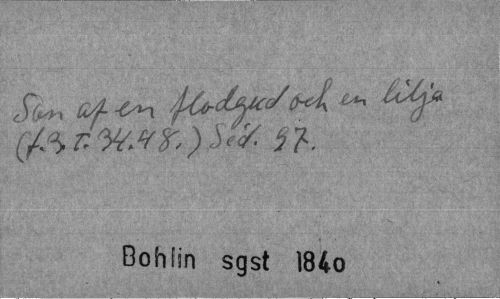 Son af en flodgud och en lilja
(f.3.T.34.48.) Séd. 97.
Bohlin sgst 1840